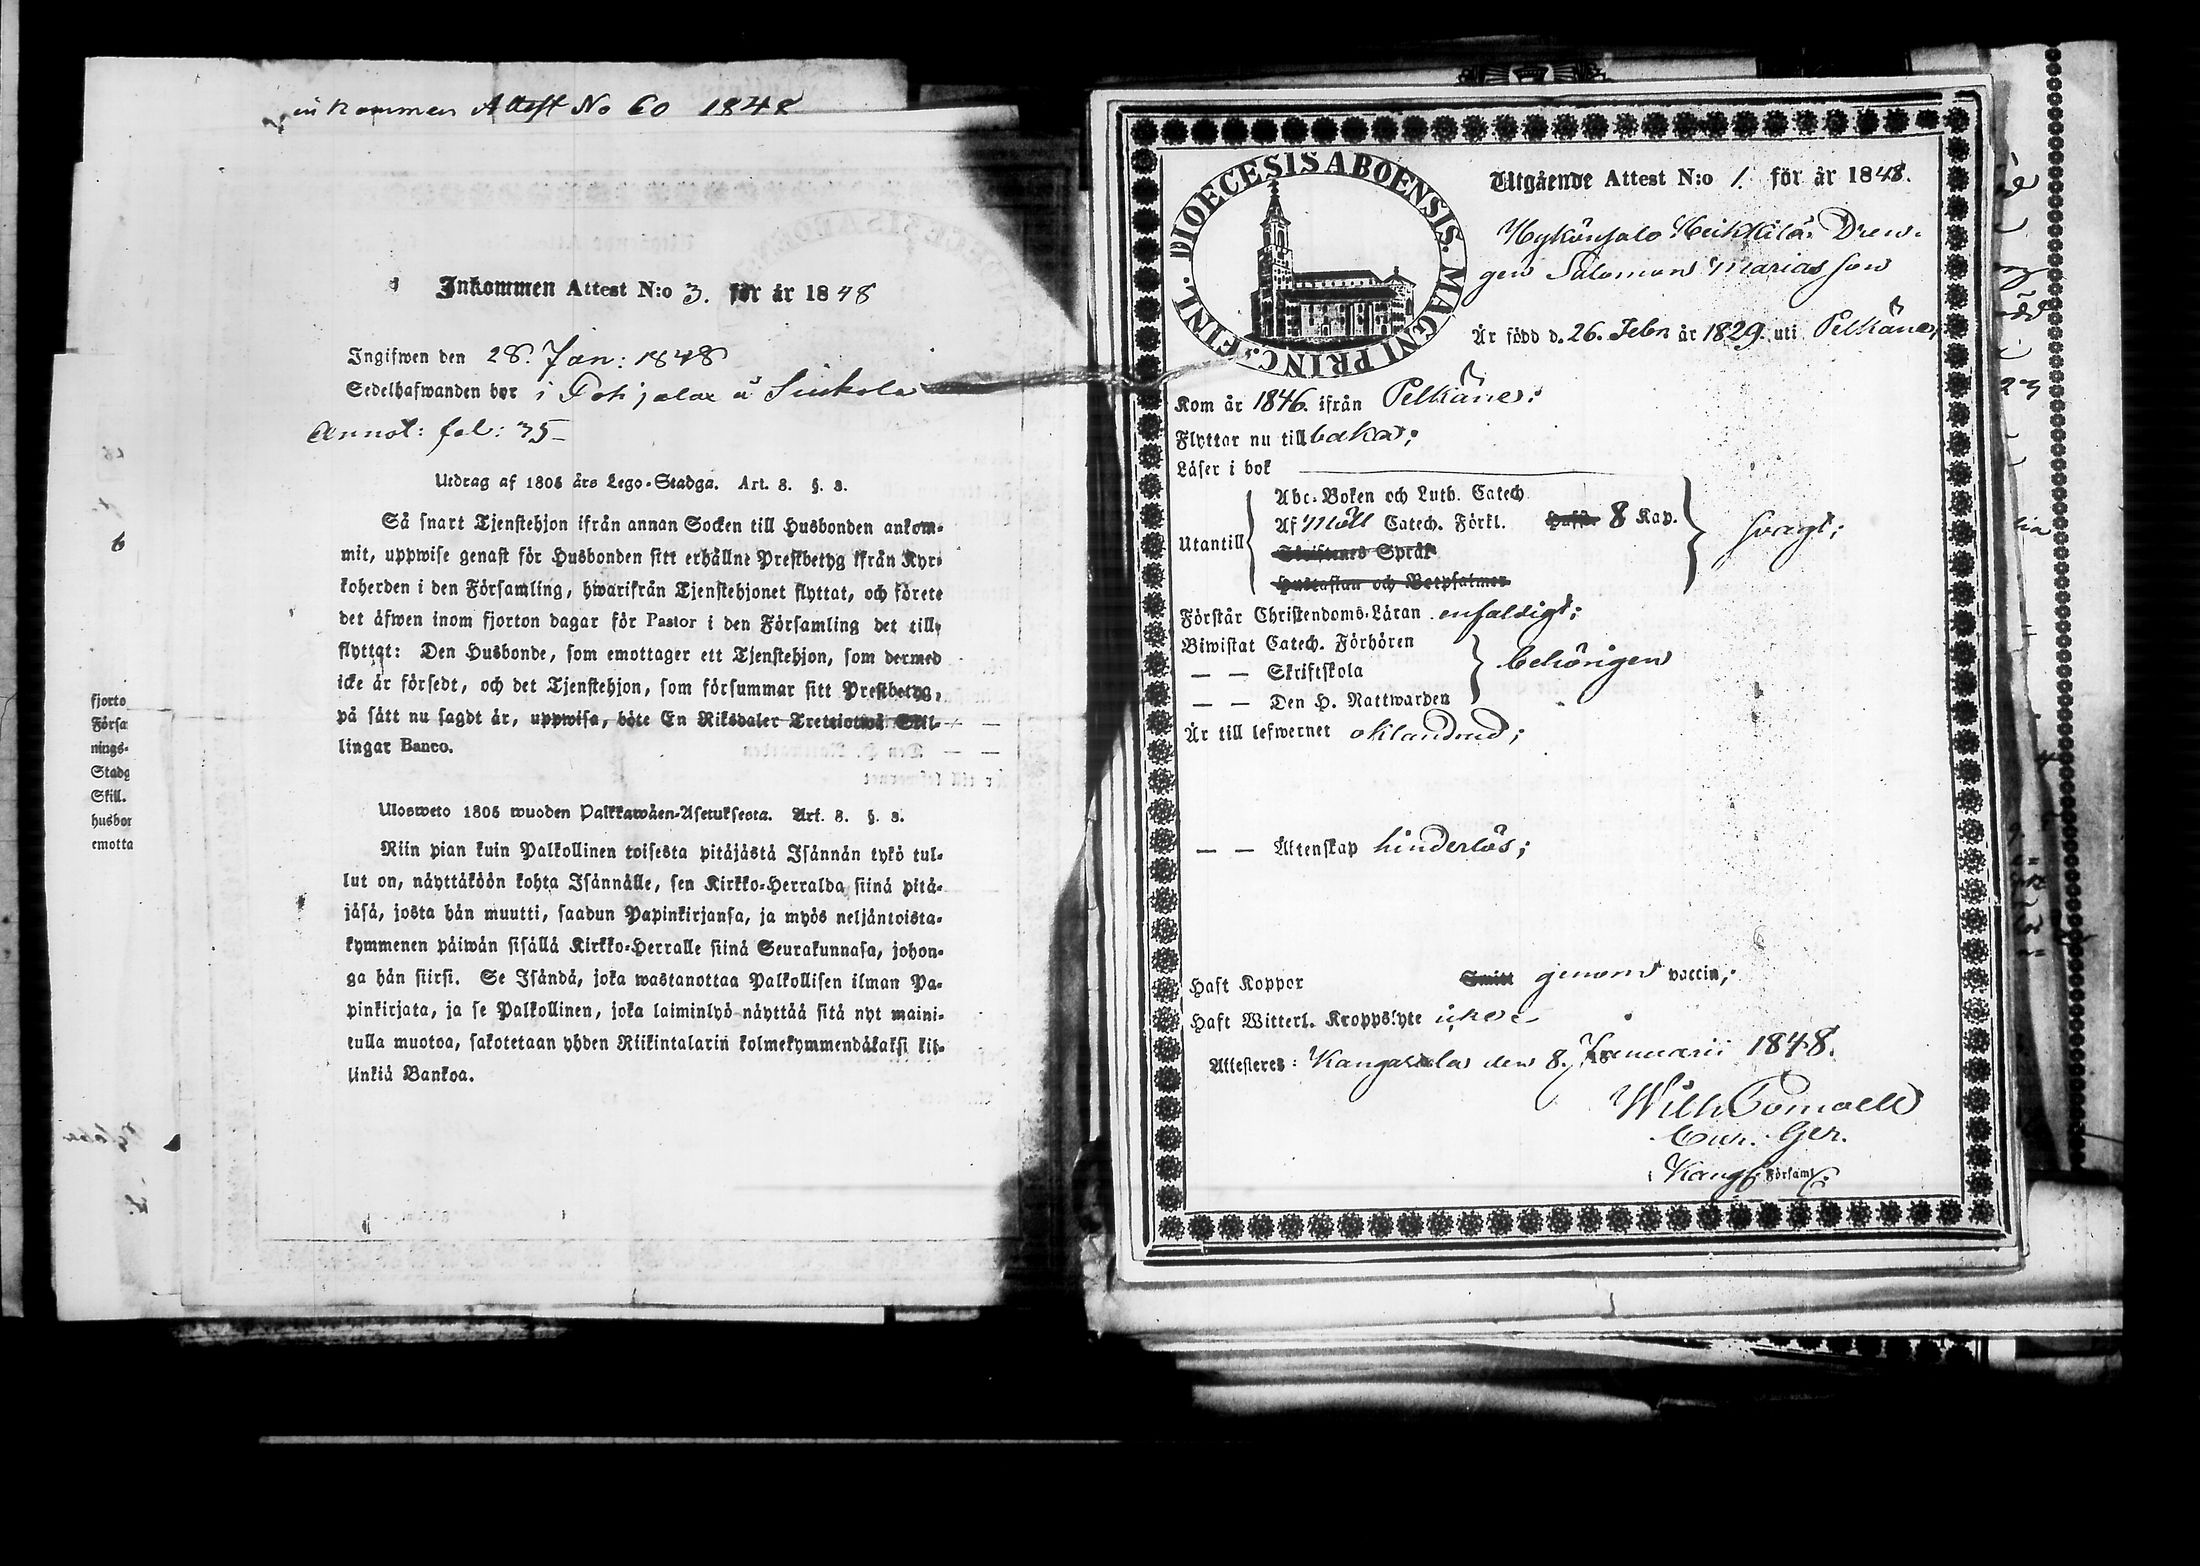 inkommen Attest No 60 1848
Inkommen Attest N:o 3. för år 1848
Ingifwen den 28. Jan: 1848
Sedelhafwanden bor i Pohjalax å
Annot: fol: 35
Utdrag af 1805 års Lego-Stadga. Art. 8. §. 3.
Så snart Tjenstehjon ifrån annan Socken till Husbonden ankom-
mit, uppwise genast för Husbonden sitt erhållne Prestbetyg ifrån Kyr-
koherden i den Församling, hwarifrån Tjenstehjonet flyttat, och förete
det äfwen inom fjorton dagar för Pastor i den Församling det till-
flyttat: Den Husbonde, som emottager ett Tjenstehjon, som dermed
icke är försedt, och det Tjenstehjon, som försummar sitt Prestbetyg,
på sätt nu sagdt är, uppwisa, böte En Riksdaler Trettiotwå Skil-
lingar Banco.
Ulosweto 1805 wuoden Palkkawäen-Asetuksesta. Art. 8. §. 3.
Niin pian kuin Palkollinen toisesta pitäjästä Isännän tykö tul-
lut on, näyttäköön kohta Isännälle, sen Kirkko-Herralda siinä pitä-
jäsä, josta hän muutti, saadun Papinkirjansa, ja myös neljäntoista-
kymmenen päiwän sisällä Kirkko-Herralle siinä Seurakunnasa, johon-
ga hän siirsi. Se Isändä, joka wastanottaa Palkollisen ilman Pa-
pinkirjata, ja se Palkollinen, joka laiminlyö näyttää sitä nyt maini-
tulla muotoa, sakotetaan yhden Riikintalarin kolmekymmendäkaksi kil-
linkiä Bankoa.
fjorto
Försa
nings-
Stadg
Skill.
husbor
emotta
DIOECESIS ABOENSIS. MAGNI PRINC. FINL.
Utgående Attest N:o 1. för år 1848.
Heikkilä Dren-
gen Salomon Mariasson
Är född d. 26. Febr. år 1829. uti Pelkäne,
Kom år 1846. ifrån Pelkäne:
Flyttar nu till baka;
Läser i bok
Abc-Boken och Luth. Catech
Af Möll Catech. Förkl. Hufst. 8 Kap.
Utantill svagt;
Skriftenes Språk
Hustaflan och Botpsalmer
Förstår Christendoms-Läran enfaldigt;
Biwistat Catech. Förhören
— — Skriftskola behörigen
— — Den H. Nattwarden
Är till lefwernet oklandrad;
— — Äktenskap hinderlös;
Haft Koppor Smitt genom vaccin;
Haft Witterl. Kroppslyte icke
Attesteres: Kangasala den 8. Januarii 1848.
Wilh.
Cur. Ger.
Kangs Församl.